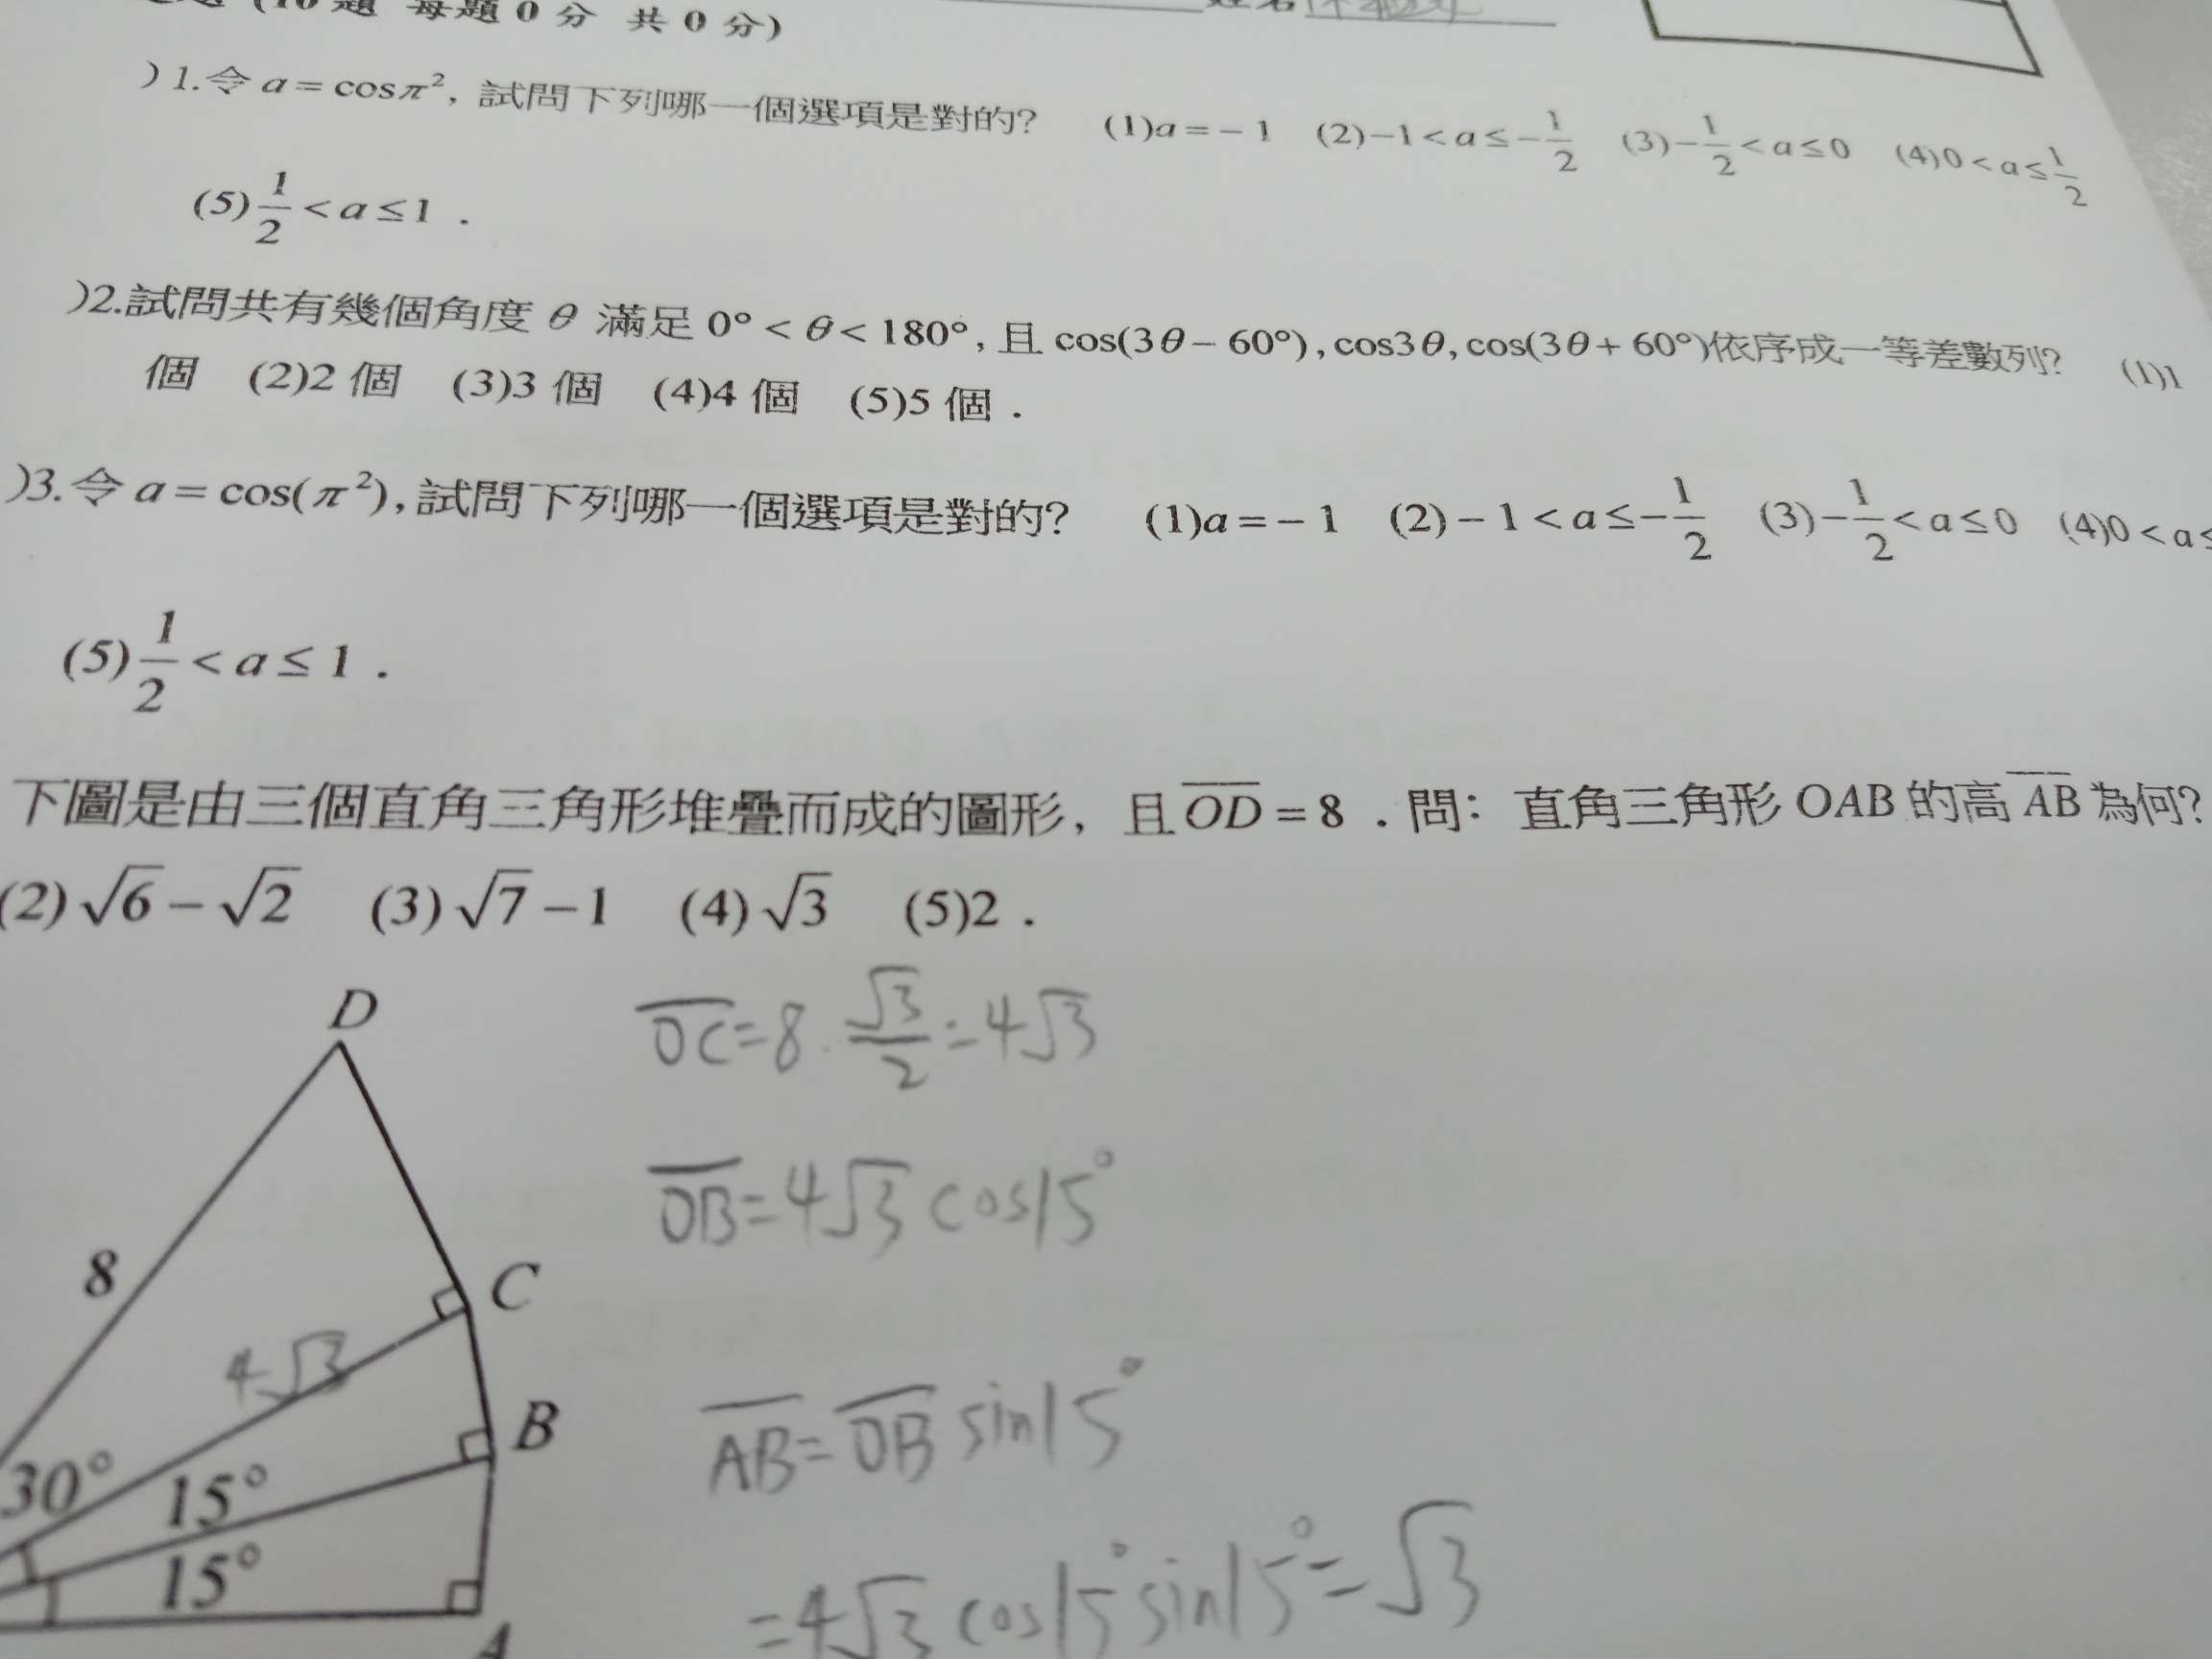 題 (10 題 每題 0 分 共 0 分)
)1.令 a = cosπ², 試問下列哪一個選項是對的? (1)a = − 1 (2)−1 < a ≤ −1/2 (3)−1/2 < a ≤ 0 (4)0 < a ≤ 1/2
(5)1/2 < a ≤ 1 .
)2.試問共有幾個角度 θ 滿足 0° < θ < 180°, 且 cos(3θ − 60°), cos3θ, cos(3θ + 60°)依序成一等差數列? (1)1
個 (2)2 個 (3)3 個 (4)4 個 (5)5 個 .
)3.令 a = cos(π²), 試問下列哪一個選項是對的? (1)a = − 1 (2)− 1 < a ≤ −1/2 (3)−1/2 < a ≤ 0 (4)0 < a ≤
(5)1/2 < a ≤ 1 .
下圖是由三個直角三角形堆疊而成的圖形, 且 \overline{OD} = 8 . 問: 直角三角形 OAB 的高 \overline{AB} 為何?
(2)√6 − √2 (3)√7 − 1 (4)√3 (5)2 .
D
\overline{OC} = 8 · √3/2 = 4√3
\overline{OB} = 4√3 cos15°
8
C
4√3
B
\overline{AB} = \overline{OB} sin15°
30°
15°
15°
= 4√3 cos15° sin15° = √3
A